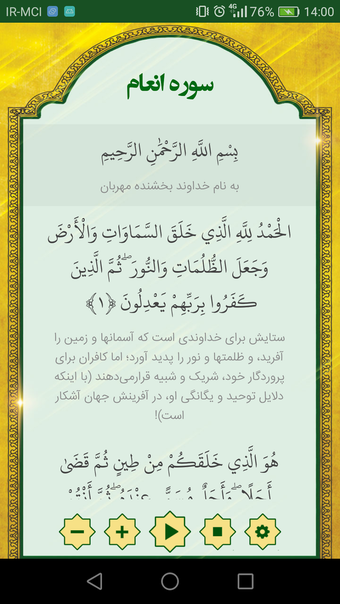 IR-MCI 4G 76% 14:00
سوره انعام
بِسْمِ اللَّهِ الرَّحْمَٰنِ الرَّحِيمِ
به نام خداوند بخشنده مهربان
الْحَمْدُ لِلَّهِ الَّذِي خَلَقَ السَّمَاوَاتِ وَالْأَرْضَ
وَجَعَلَ الظُّلُمَاتِ وَالنُّورَ ۖ ثُمَّ الَّذِينَ
كَفَرُوا بِرَبِّهِمْ يَعْدِلُونَ ﴿١﴾
ستایش برای خداوندی است که آسمانها و زمین را
آفرید، و ظلمتها و نور را پدید آورد؛ اما کافران برای
پروردگار خود، شریک و شبیه قرارمی‌دهند (با اینکه
دلایل توحید و یگانگی او، در آفرینش جهان آشکار
است)!
هُوَ الَّذِي خَلَقَكُمْ مِنْ طِينٍ ثُمَّ قَضَىٰ
أَجَلًا ۖ وَأَجَلٌ مُسَمًّى عِنْدَهُ ۖ ثُمَّ أَنْتُمْ